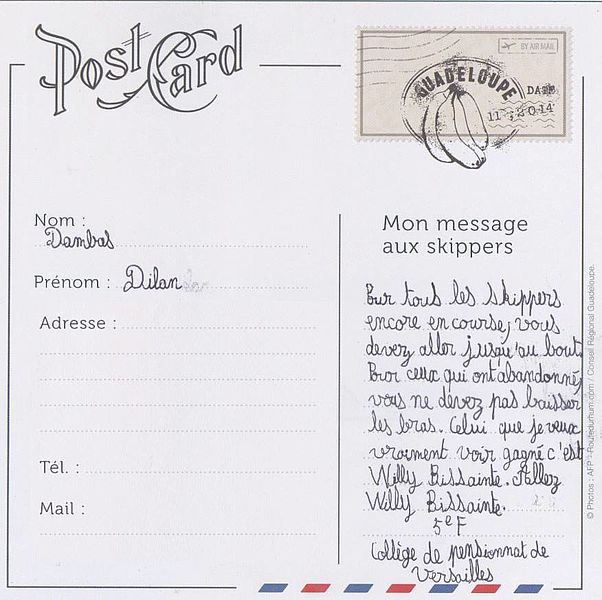 Post Card
BY AIR MAIL
GUADELOUPE
DATE
11 2014
Nom :
Dambas
Prénom : Dilan
Adresse :
Tél. :
Mail :
Mon message
aux skippers
Pour tous les skippers
encore en course, vous
devez aller jusqu'au bout.
Pour ceux qui ont abandonné,
vous ne devez pas baisser
les bras. Celui que je veux
vraiment voir gagné c'est
Willy Bissainte. Allez
Willy Bissainte.
5e F
Collège de pensionnat de
Versailles
© Photos : AFP - Routedurhum.com / Conseil Régional Guadeloupe.